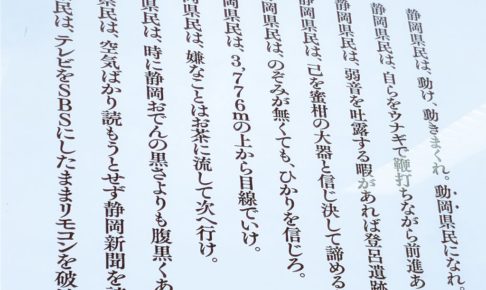 静岡県民は、動け、動きまくれ。動岡県民になれ。
静岡県民は、自らをウナギで鞭打ちながら前進あ
静岡県民は、弱音を吐露する暇があれば登呂遺跡
静岡県民は、己を蜜柑の大器と信じ決して諦める
静岡県民は、のぞみが無くても、ひかりを信じろ。
岡県民は、3,776mの上から目線でいけ。
県民は、嫌なことはお茶に流して次へ行け。
県民は、時に静岡おでんの黒さよりも腹黒くあ
県民は、空気ばかり読もうとせず静岡新聞を
民は、テレビをSBSにしたままリモコンを破